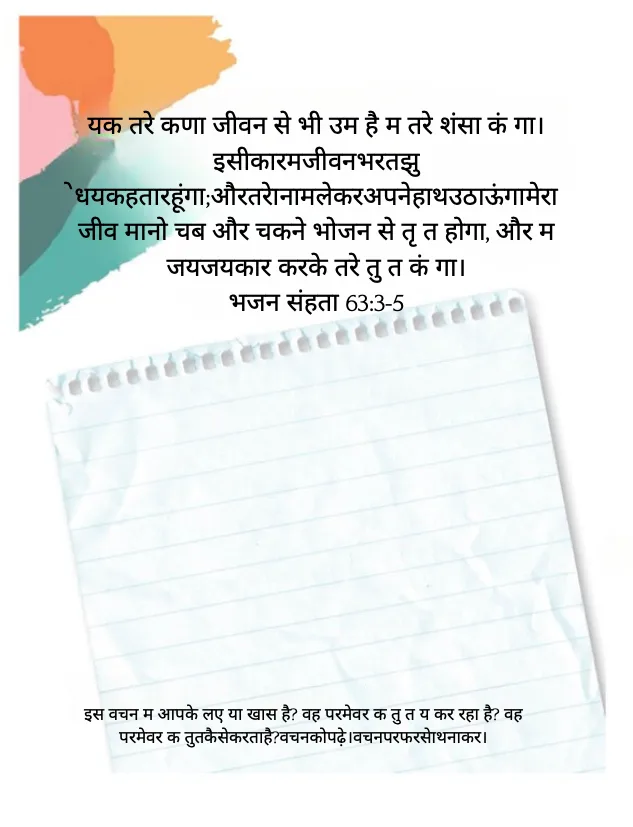 यक तरे कणा जीवन से भी उम है म तरे शंसा कं गा।
इसीकारमजीवनभरतझु
ेधयकहतारहूंगा;औरतरेानामलेकरअपनेहाथउठाऊंगामेरा
जीव मानो चब और चकने भोजन से तृ त होगा, और म
जयजयकार करके तरे तु त कं गा।
भजन संहता 63:3-5
इस वचन म आपके लए या खास है? वह परमेवर क तु त य कर रहा है? वह
परमेवर क तुतकैसेकरताहै?वचनकोपढ़े।वचनपरफरसेाथनाकर।